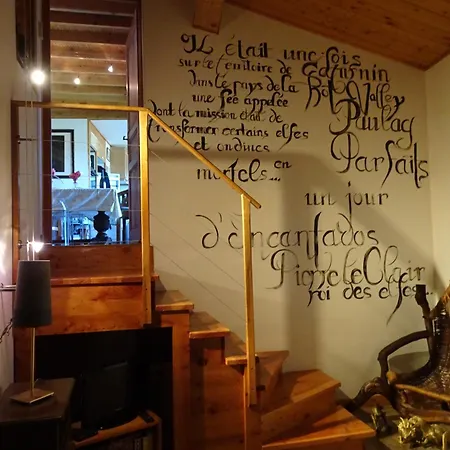 Il était une fois
sur le territoire de Saturnin
dans le pays de la Rob Valley
une fée appelée Paulag
dont la mission était de
transformer certains elfes Parfaits
et ondines en
mortels...
un jour
d'Encantados
Pierre le Clair
roi des elfes...